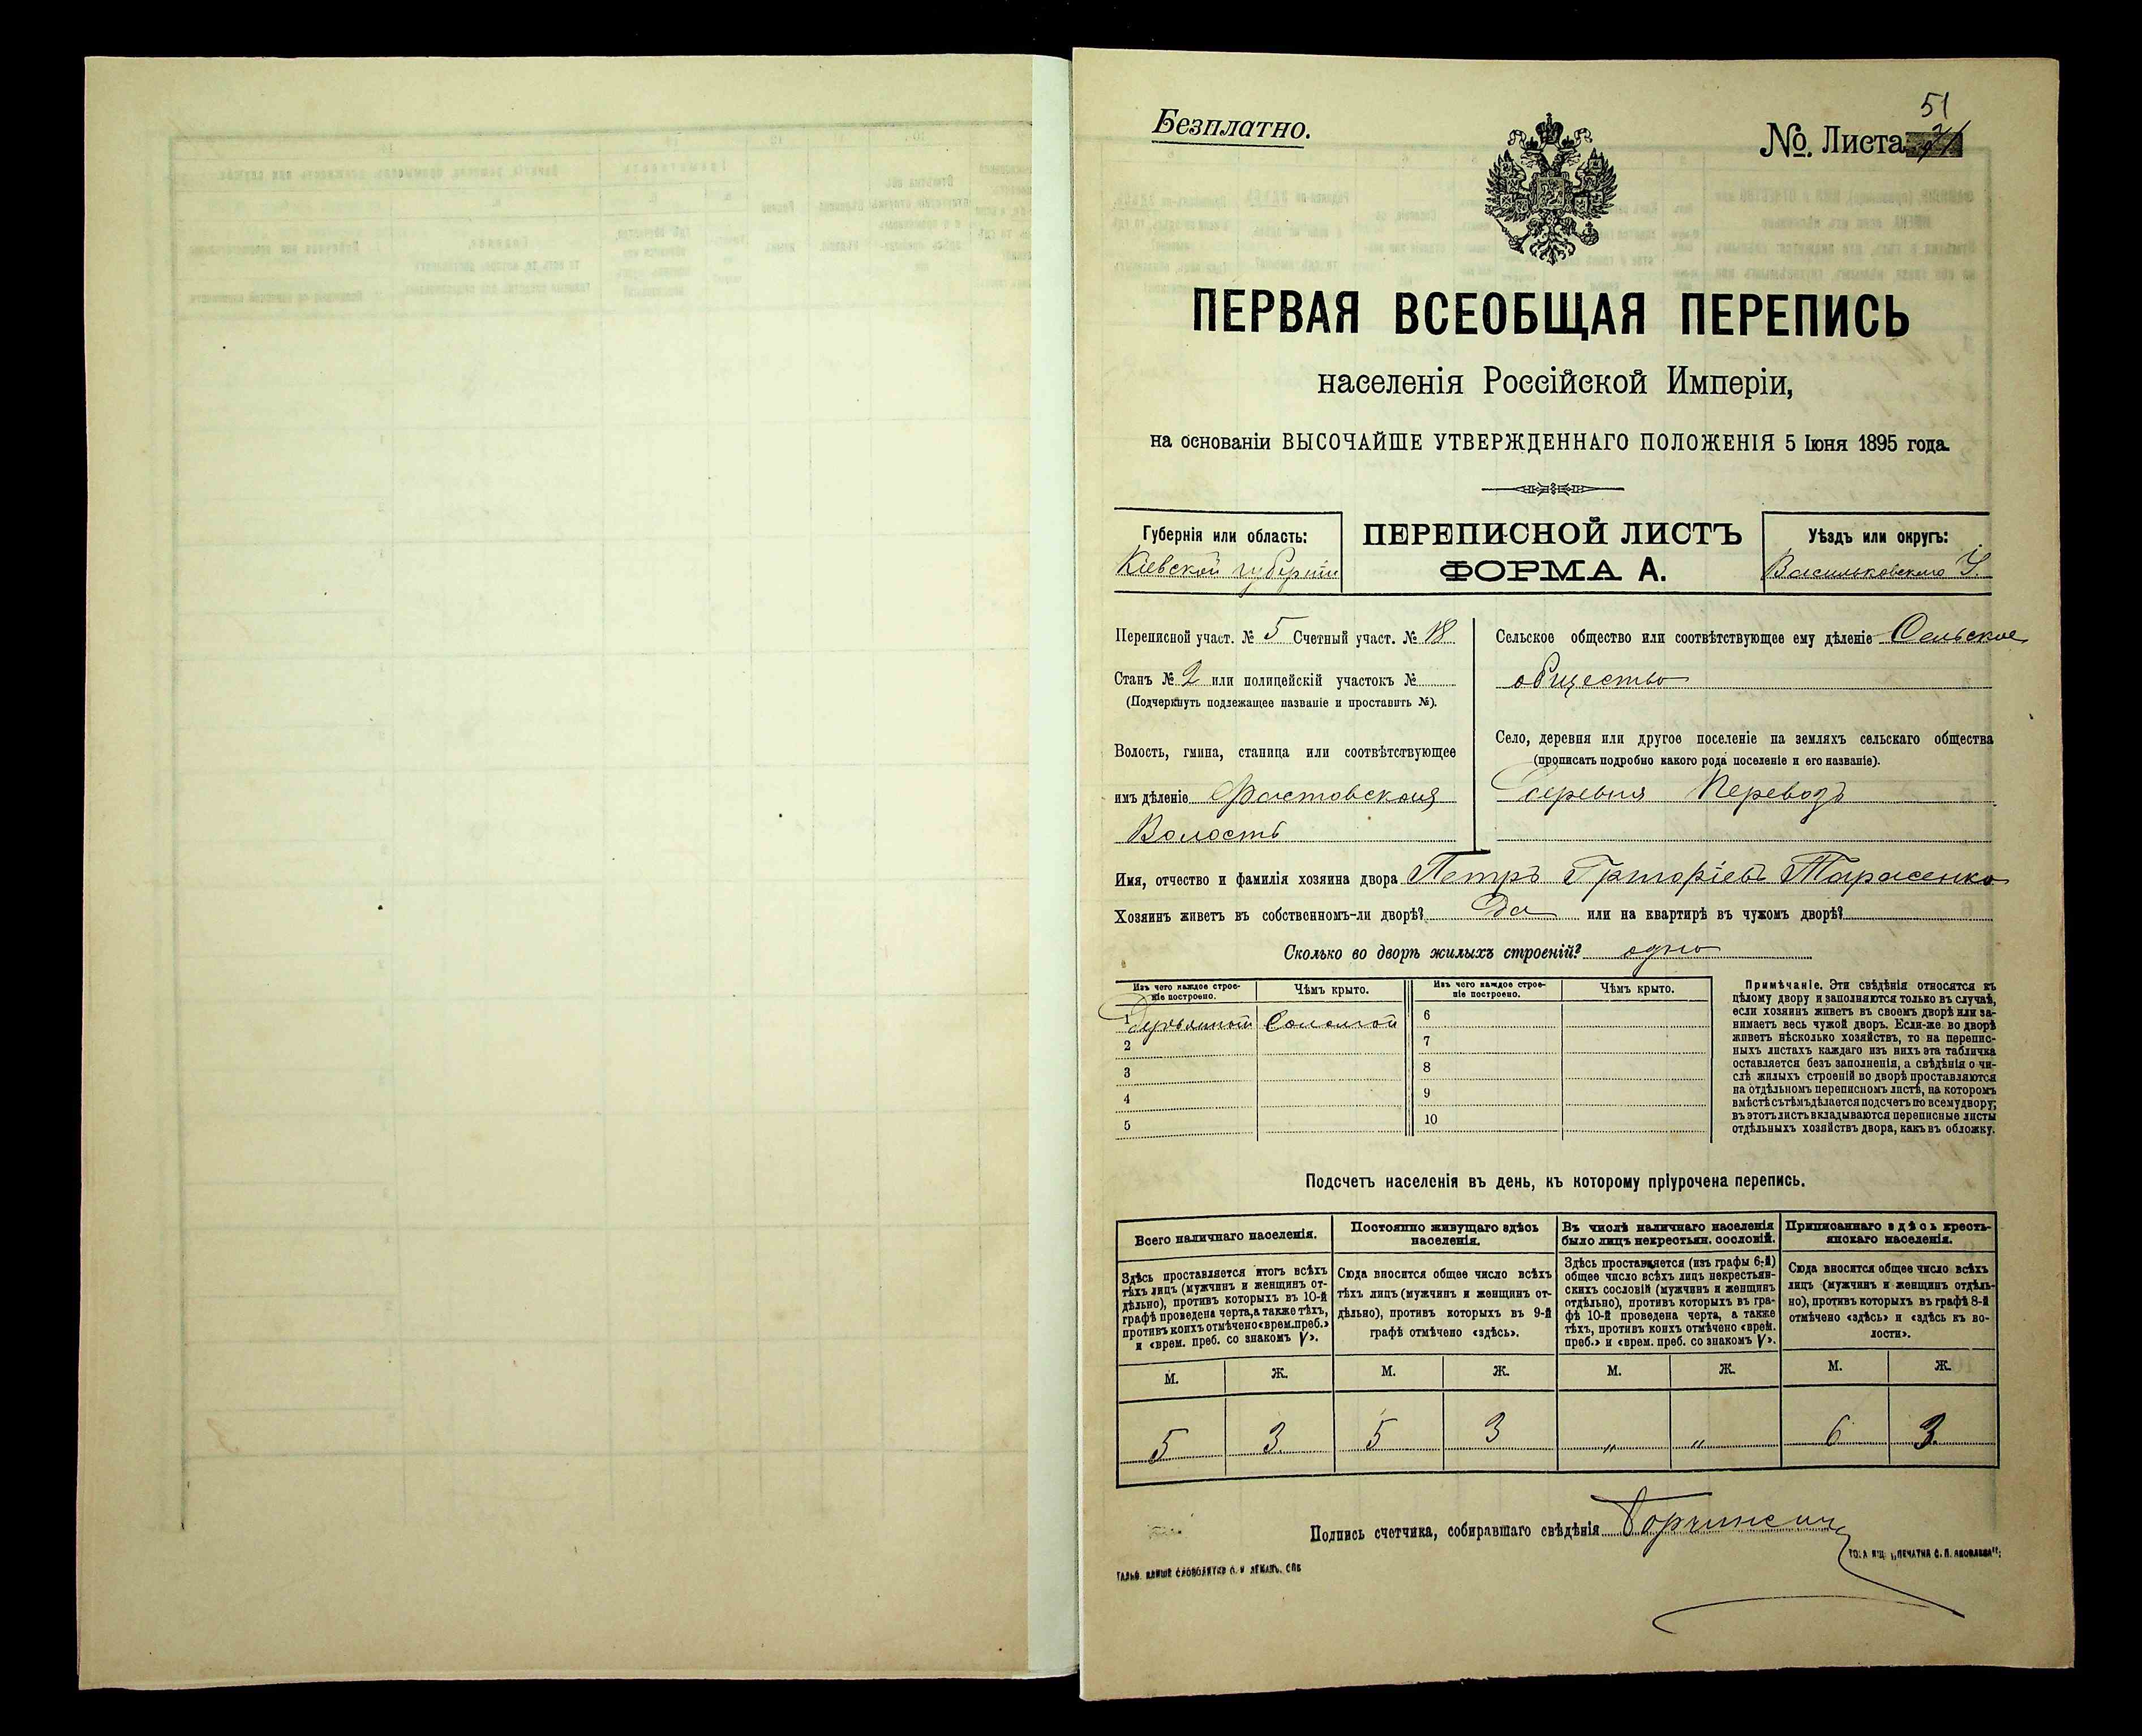 Безплатно.
51
№. Листа
ПЕРВАЯ ВСЕОБЩАЯ ПЕРЕПИСЬ
населенія Россійской Имперіи,
на основаніи ВЫСОЧАЙШЕ УТВЕРЖДЕННАГО ПОЛОЖЕНІЯ 5 Іюня 1895 года.
Губернія или область:
Кіевской губерніи
ПЕРЕПИСНОЙ ЛИСТЪ
ФОРМА А.
Уѣздъ или округъ:
Васильковскаго У.
Переписной участ. № 5 Счетный участ. № 18
Станъ № 2 или полицейскій участокъ №
(Подчеркнуть подлежащее названіе и проставить №).
Волость, гмина, станица или соотвѣтствующее
имъ дѣленіе Фастовская
Волость
Сельское общество или соотвѣтствующее ему дѣленіе Сельское
общество
Село, деревня или другое поселеніе на земляхъ сельскаго общества
(прописать подробно какого рода поселеніе и его названіе).
Деревня Перевозъ
Имя, отчество и фамилія хозяина двора Петръ Григоріевъ Тарасенко
Хозяинъ живетъ въ собственномъ-ли дворѣ? Да или на квартирѣ въ чужомъ дворѣ?
Сколько во дворѣ жилыхъ строеній? одно
Изъ чего каждое строе-
ніе построено.
Чѣмъ крыто.
Изъ чего каждое строе-
ніе построено.
Чѣмъ крыто.
1 Соломой 6
2 7
3 8
4 9
5 10
Примѣчаніе. Эти свѣдѣнія относятся къ
цѣлому двору и заполняются только въ случаѣ,
если хозяинъ живетъ въ своемъ дворѣ или за-
нимаетъ весь чужой дворъ. Если-же во дворѣ
живетъ нѣсколько хозяйствъ, то на перепис-
ныхъ листахъ каждаго изъ нихъ эта табличка
оставляется безъ заполненія, а свѣдѣнія о чи-
слѣ жилыхъ строеній во дворѣ проставляются
на отдѣльномъ переписномъ листѣ, на которомъ
вмѣстѣ съ тѣмъ дѣлается подсчетъ по всему двору;
въ этотъ листъ вкладываются переписные листы
отдѣльныхъ хозяйствъ двора, какъ въ обложку.
Подсчетъ населенія въ день, къ которому пріурочена перепись.
Всего наличнаго населенія.
Здѣсь проставляется итогъ всѣхъ
тѣхъ лицъ (мужчинъ и женщинъ от-
дѣльно), противъ которыхъ въ 10-й
графѣ проведена черта, а также тѣхъ,
противъ коихъ отмѣчено «врем. преб.»
и «врем. преб. со знакомъ V».
Постоянно живущаго здѣсь
населенія.
Сюда вносится общее число всѣхъ
тѣхъ лицъ (мужчинъ и женщинъ от-
дѣльно), противъ которыхъ въ 9-й
графѣ отмѣчено «здѣсь».
Въ числѣ наличнаго населенія
было лицъ некрестьян. сословій.
Здѣсь проставляется (изъ графы 6-й)
общее число всѣхъ лицъ некрестьян-
скихъ сословій (мужчинъ и женщинъ
отдѣльно), противъ которыхъ въ гра-
фѣ 10-й проведена черта, а также
тѣхъ, противъ коихъ отмѣчено «врем.
преб.» и «врем. преб. со знакомъ V».
Приписаннаго здѣсь кресть-
янскаго населенія.
Сюда вносится общее число всѣхъ
лицъ (мужчинъ и женщинъ отдѣль-
но), противъ которыхъ въ графѣ 8-й
отмѣчено «здѣсь» и «здѣсь къ во-
лости».
М. Ж. М. Ж. М. Ж. М. Ж.
5 3 5 3 " " 6 3
Подпись счетчика, собиравшаго свѣдѣнія